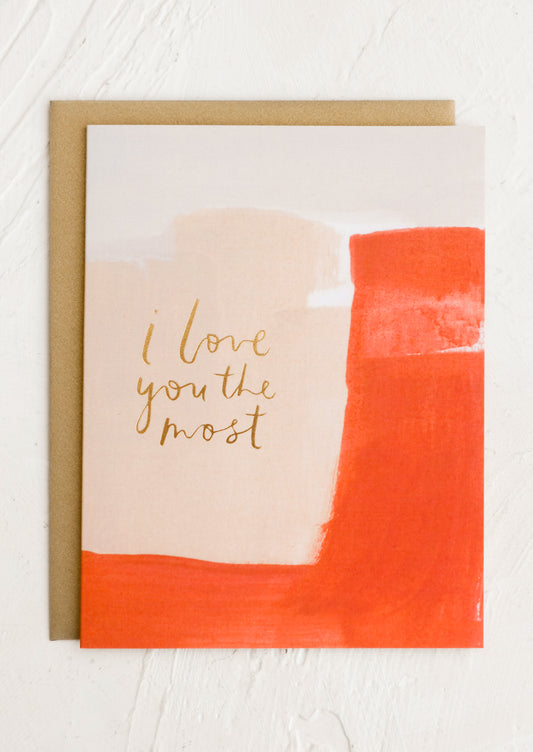 i love
you the
most